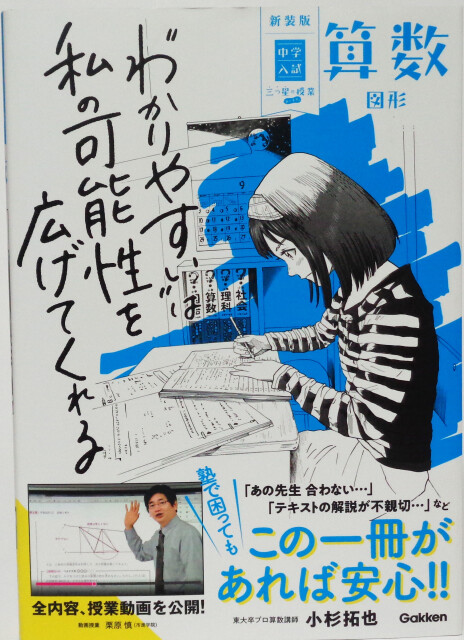 新装版
中学
入試
三つ星の授業
あります。
算数
図形
"わかりやすい"は
私の可能性を
広げてくれる
9
社会
理科
算数
国語
塾で困っても
「あの先生 合わない…」
「テキストの解説が不親切…」など
この一冊が
あれば安心!!
全内容、授業動画を公開!
動画授業 栗原 慎(市進学院)
東大卒プロ算数講師 小杉拓也
Gakken